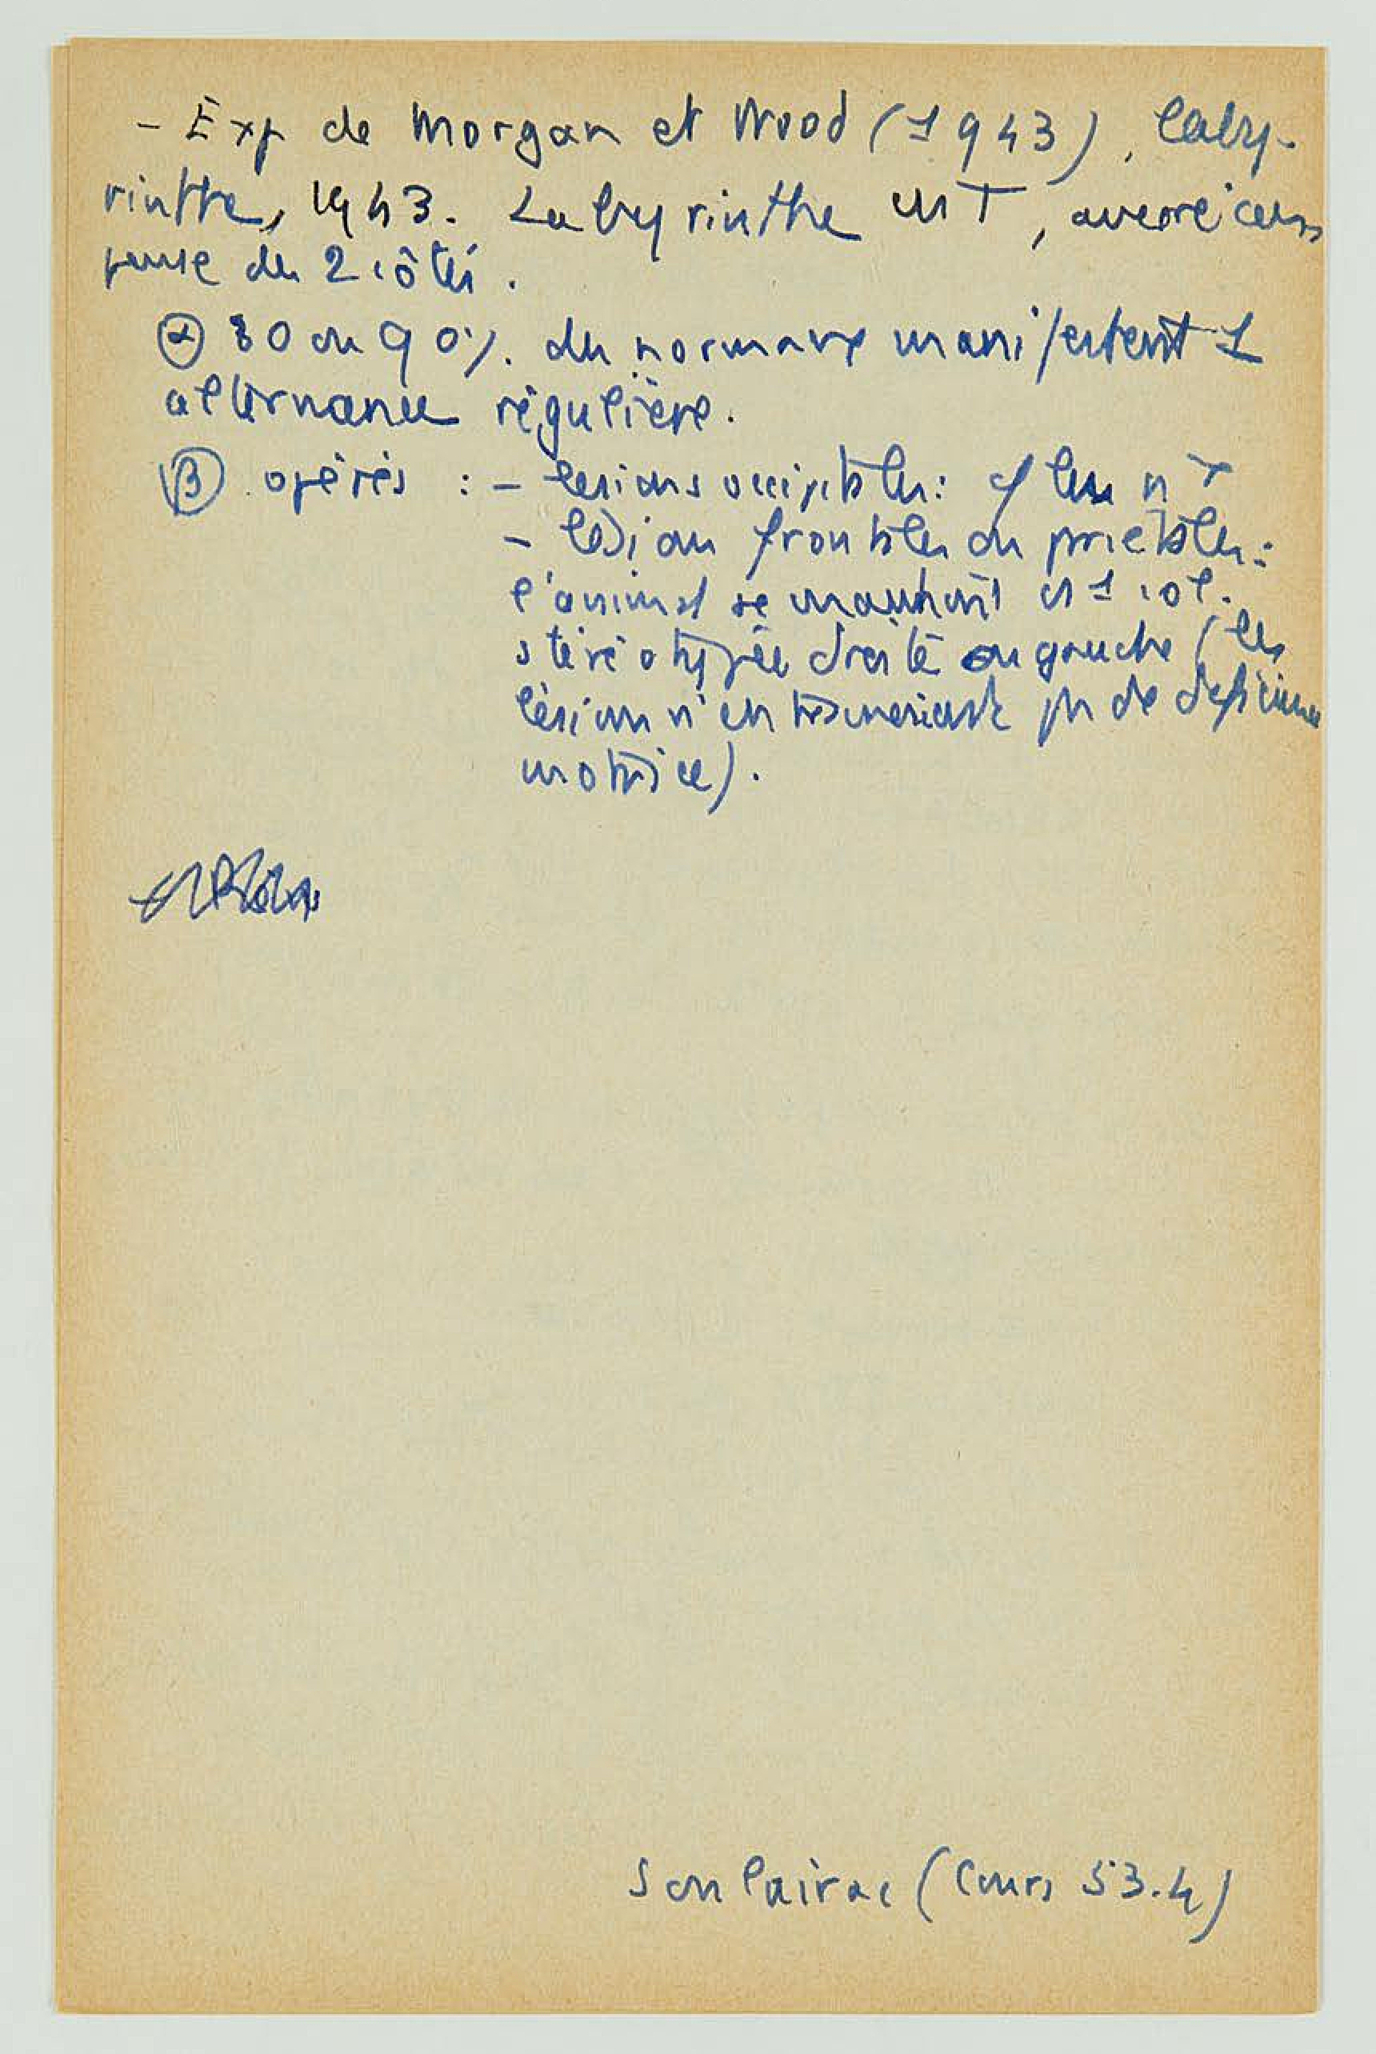 - Exp de Morgan et Wood (1943), laby-
rinthe, 1943. Labyrinthe en T, avec récom
pense des 2 côtés.
α 80 ou 90%. des normaux manifestent 1
alternance régulière.
β opérés : - lésions occipitales: cf les nx
- lésions frontales ou pariétales:
l'animal se maintient
stéréotypée droite ou gauche (les
lésions n'entraineraient pas de déficience
motrice).
Soulairac (Cours 53.4)